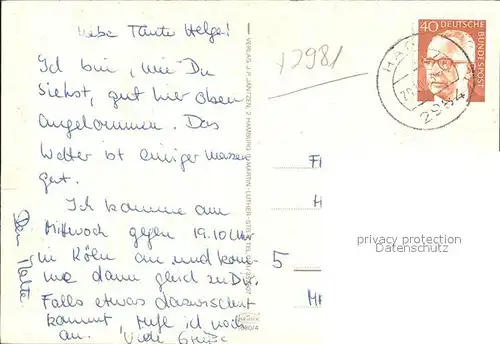 Liebe Tante Helga!
Ich bin, wie Du
siehst, gut hier oben
angekommen. Das
Wetter ist einigermassen
gut.
Ich komme am
Mittwoch gegen 19.10 Uhr
in Köln an und kom-
me dann gleich zu Dir.
Falls etwas dazwischen
kommt, rufe ich noch
an. Viele Grüße
Dein Malte
VERLAG J.P. JANTZEN, 2 HAMBURG MARTIN-LUTHER-STR. TEL.
+2981
40 DEUTSCHE
BUNDESPOST
HAG
2984
Fl
H
5
privacy protection
Datenschutz